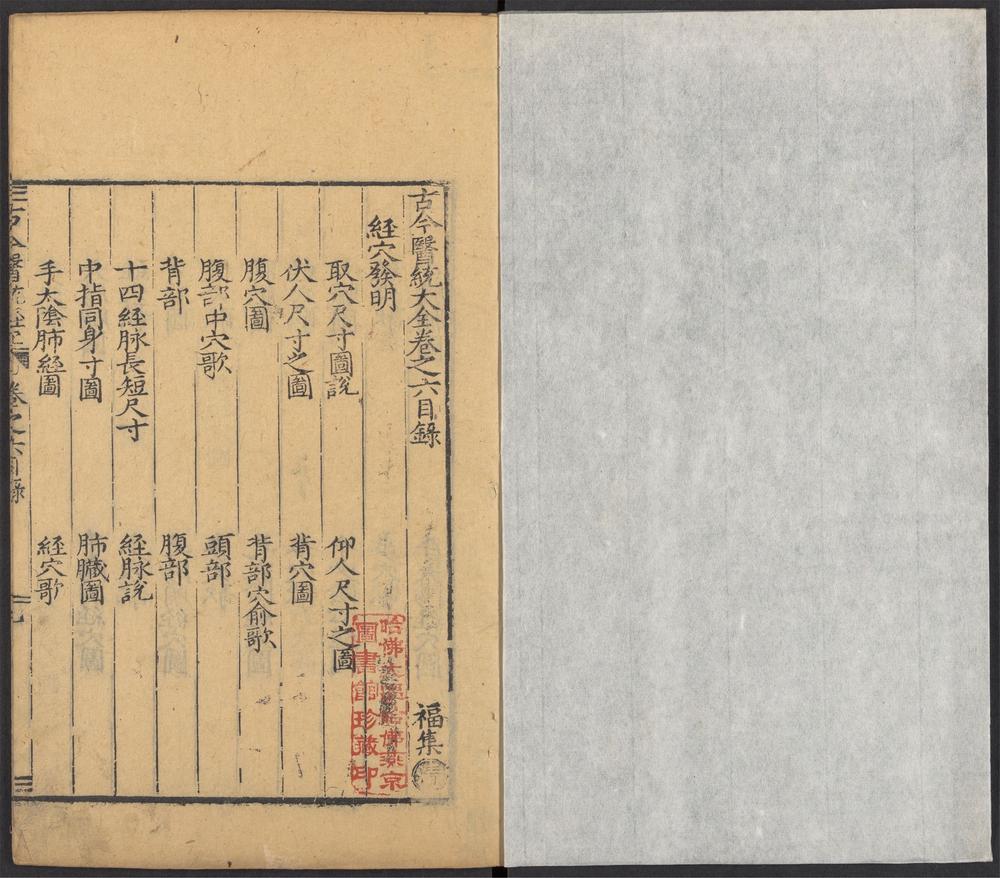 古今醫統大全卷之六目錄
福集
経穴發明
取穴尺寸圖説
仰人尺寸之圖
伏人尺寸之圖
背穴圖
腹穴圖
背部穴俞歌
腹部中穴歌
頭部
背部
腹部
十四経脉長短尺寸
経脉説
中指同身寸圖
肺臟圖
手太陰肺経圖
経穴歌
古今醫統
卷之六目錄
哈佛大學哈佛燕京
圖書館珍藏印